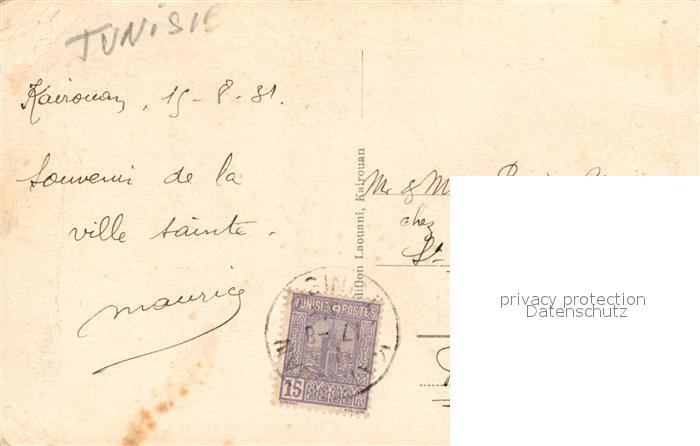 TUNISIE
Kairouan, 15-8-31.
Souvenir de la
ville sainte.
Maurice
Edition Laouani, Kairouan
Mr & M
chez
St
TUNISIE POSTES
15
privacy protection
Datenschutz